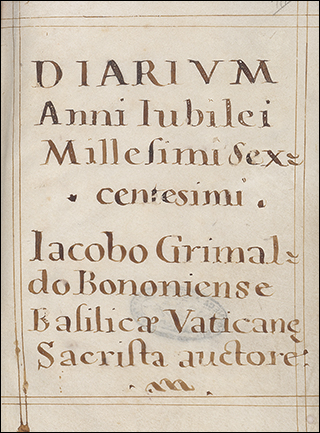 DIARIVM
Anni Iubilei
Millesimi Sex=
centesimi.
Iacobo Grimal=
do Bononiense
Basilicæ Vaticanę
Sacrista auctore: